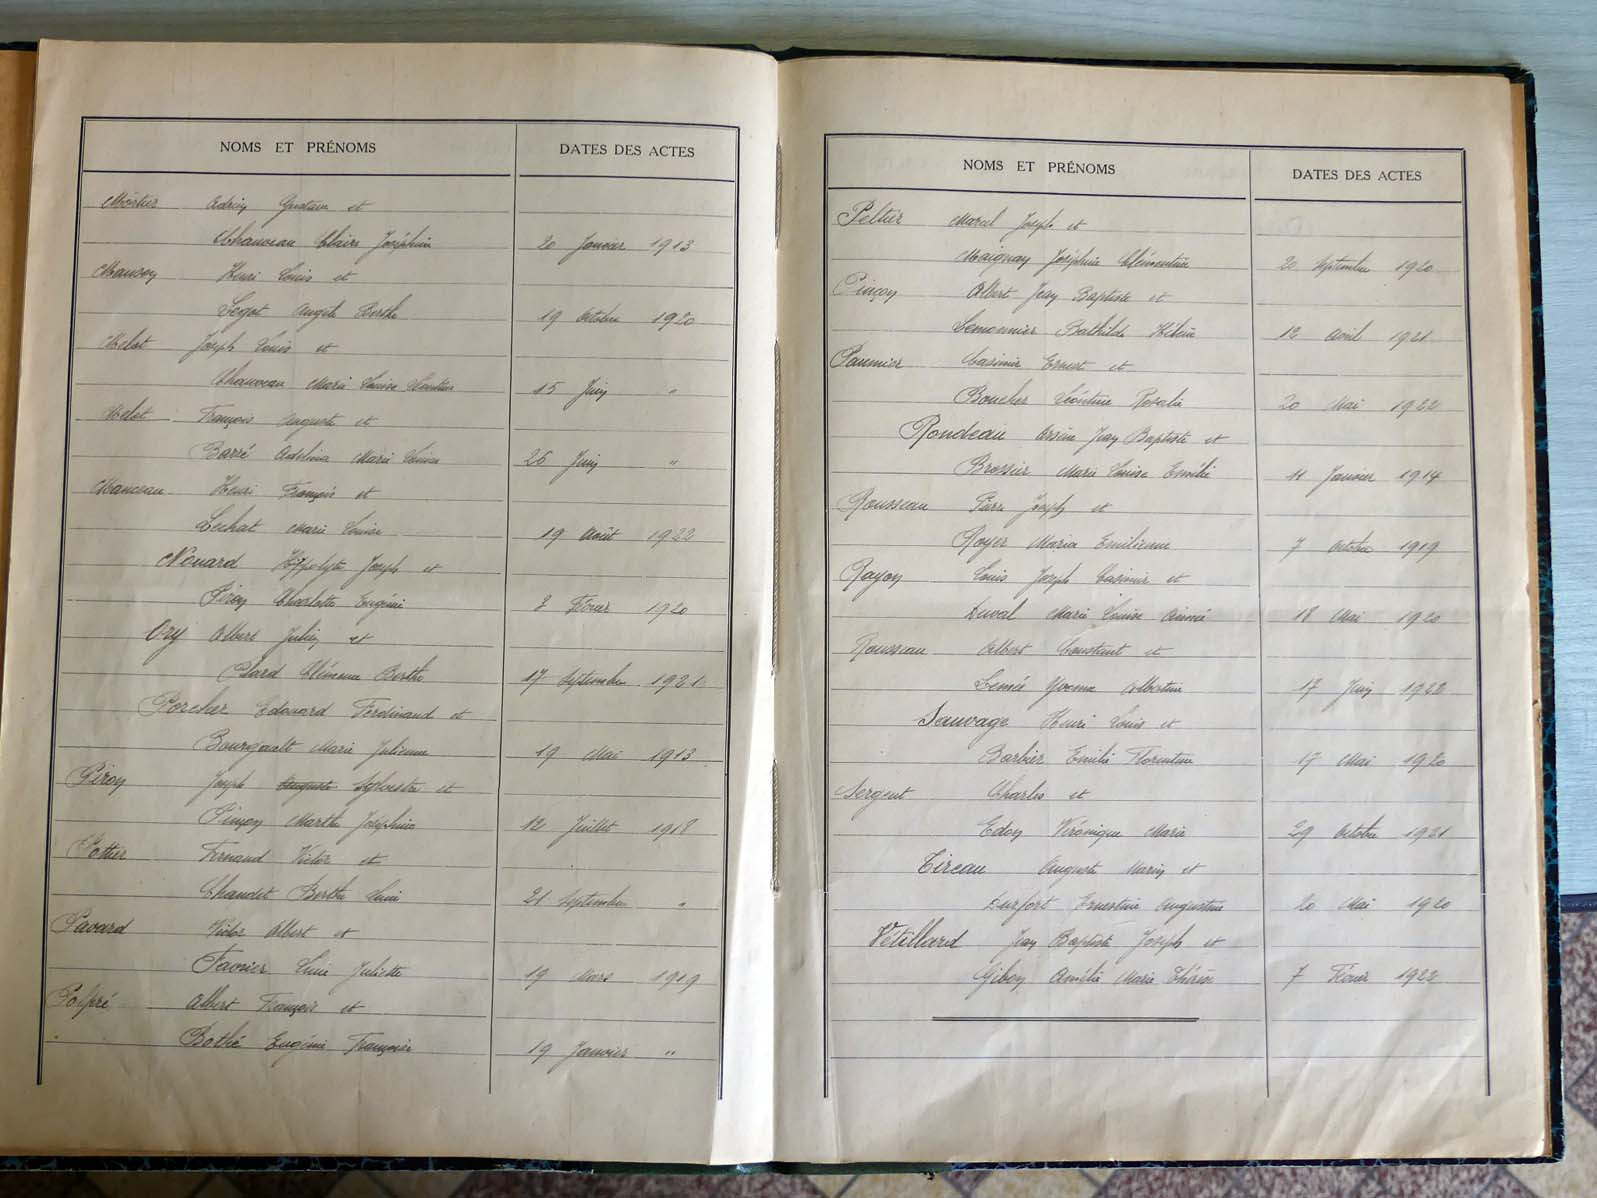 NOMS ET PRÉNOMS
DATES DES ACTES
Gustave et
Chauveau Claire Joséphine 20 Janvier 1913
Henri Louis et
Legot Angèle Berthe 19 Octobre 1920
Joseph Louis et
Chauveau Marie Louise 15 Juin "
François Auguste et
Barré Adelina Marie Louise 26 Juin "
Manceau Henri François et
Lechat Marie Louise 19 Août 1922
Nouard Hippolyte Joseph et
Piron Charlotte Eugénie 3 Février 1920
Ory Albert Julien et
Plard Clémence Berthe 17 Septembre 1921
Porcher Edouard Ferdinand et
Bourgault Marie Julienne 19 Mai 1913
Piron Joseph Auguste Sylvestre et
Pinçon Marthe Joséphine 12 Juillet 1918
Pottier Fernand Victor et
Chaudet Berthe 21 Septembre "
Pavard Victor Albert et
Favrier Juliette 19 Mars 1919
Poipré Albert François et
Bothé Eugénie Françoise 19 Janvier "
NOMS ET PRÉNOMS
DATES DES ACTES
Peltier Marcel Joseph et
Maignan Joséphine Clémentine 20 Septembre 1920
Pinçon Albert Jean Baptiste et
Lemonnier Bathilde Hélène 12 Avril 1921
Paumier Casimir Ernest et
Boucher Léontine Rosalie 20 Mai 1922
Rondeau Arsène Jean Baptiste et
Brossier Marie Louise Emilie Janvier 1914
Rousseau Pierre Joseph et
Royer Maria Emilienne 7 Octobre 1919
Rayon Louis Joseph Casimir et
Duval Marie Louise Aimée 18 Mai 1920
Rousseau Albert Constant et
Lemée Yvonne Albertine 17 Juin 1922
Sauvage Henri Louis et
Barbier Emilie Florentine 17 Mai 1920
Sergent Charles et
Edon Véronique Marie 29 Octobre 1921
Tireau Auguste Marin et
Durfort Ernestine Augustine 20 Mai 1920
Vétillard Jean Baptiste Joseph et
Gibon Amélie Marie 7 Février 1922